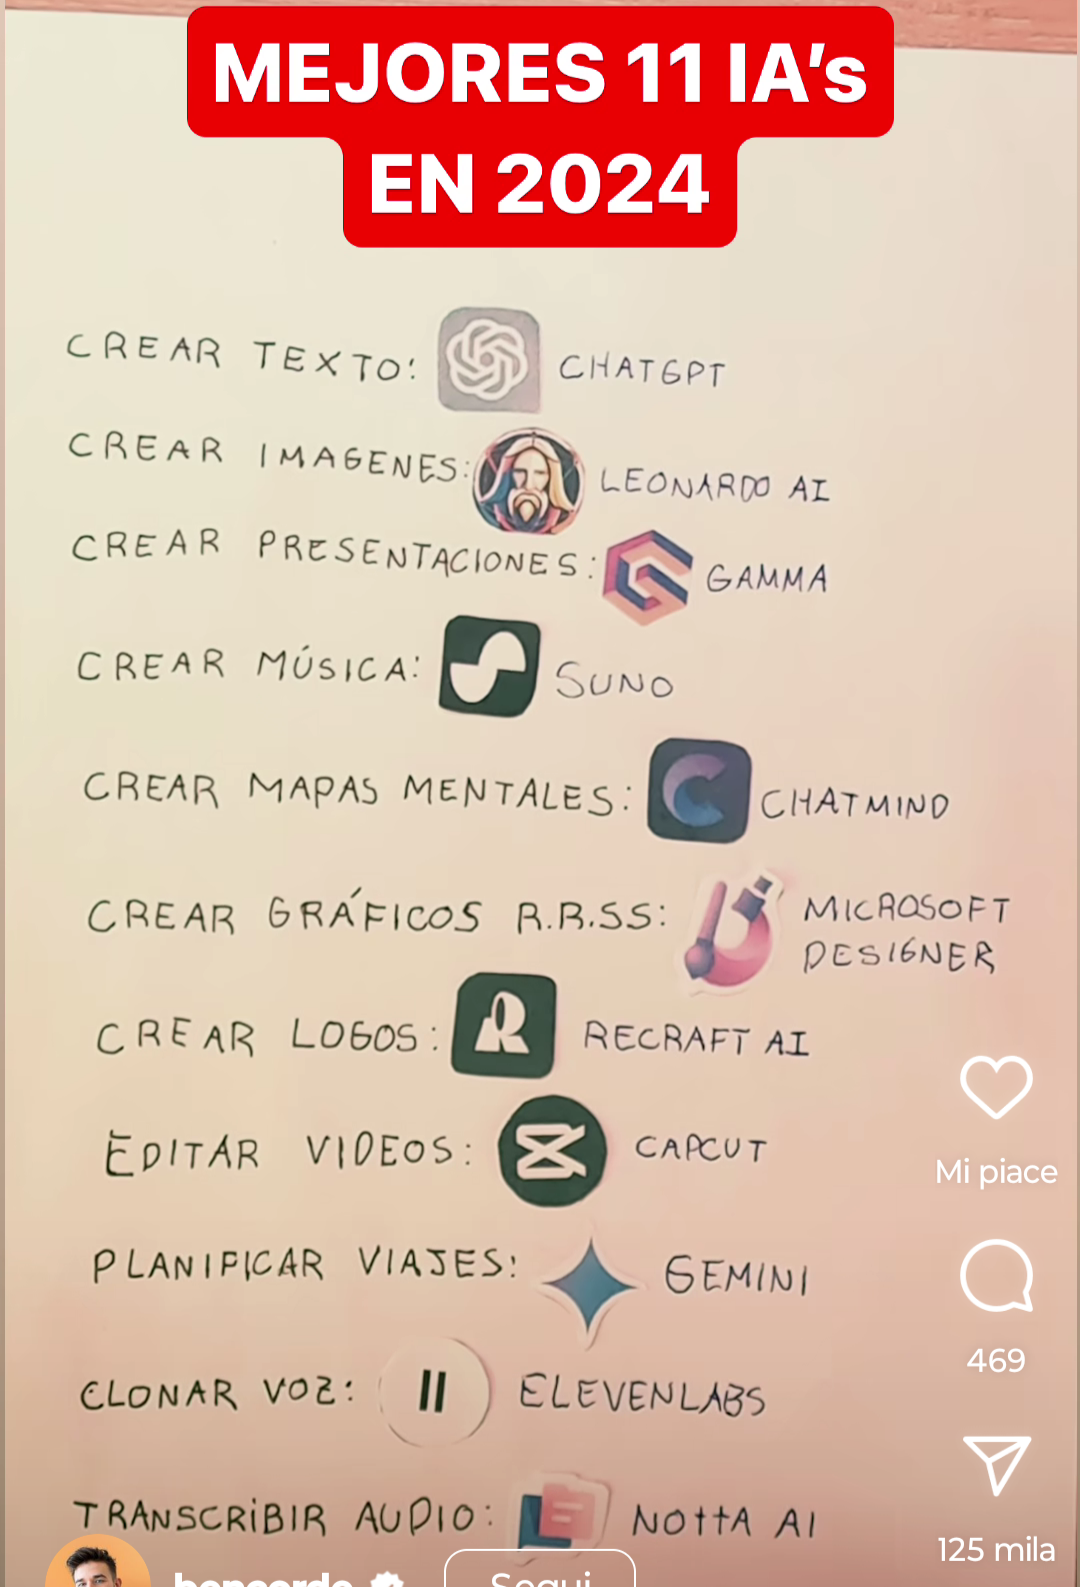 MEJORES 11 IA's
EN 2024
CREAR TEXTO: CHATGPT
CREAR IMAGENES: LEONARDO AI
CREAR PRESENTACIONES: GAMMA
CREAR MÚSICA: SUNO
CREAR MAPAS MENTALES: CHATMIND
CREAR GRÁFICOS R.R.SS: MICROSOFT
DESIGNER
CREAR LOGOS: RECRAFT AI
EDITAR VIDEOS: CAPCUT
Mi piace
PLANIFICAR VIAJES: GEMINI
469
CLONAR VOZ: ELEVENLABS
TRANSCRIBIR AUDIO: NOTTA AI
125 mila
Segui